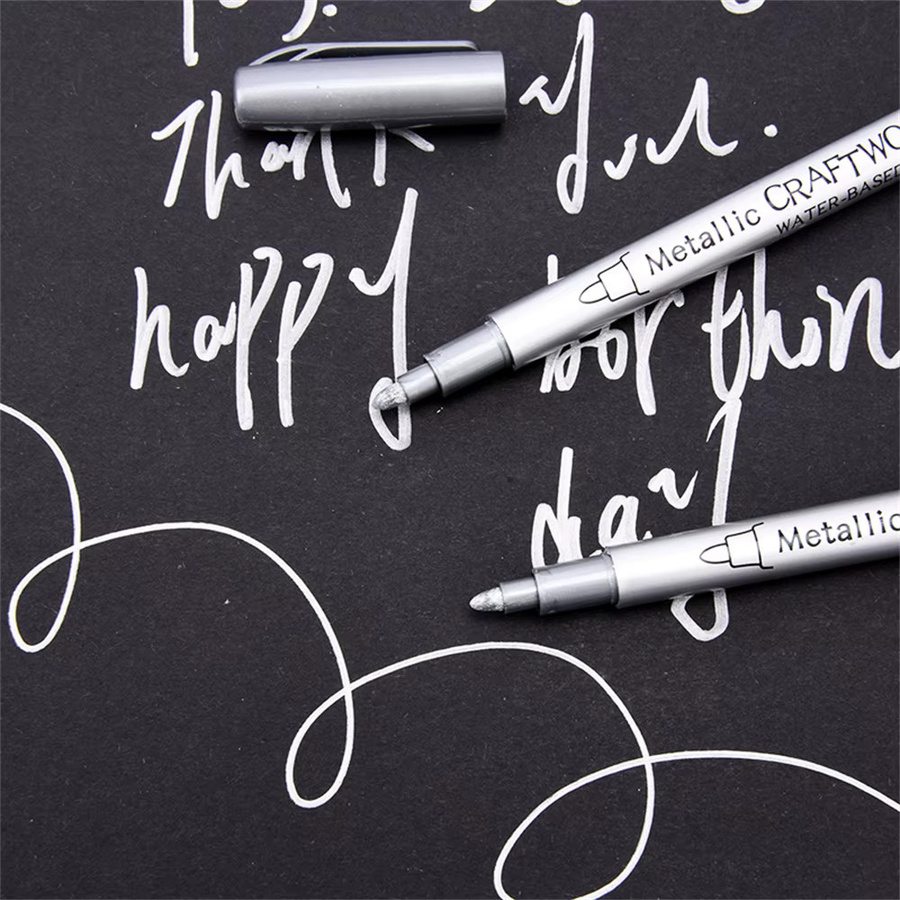 Thank you.
happy bor thin
day
Metallic CRAFTWO
WATER-BASED
Metallic